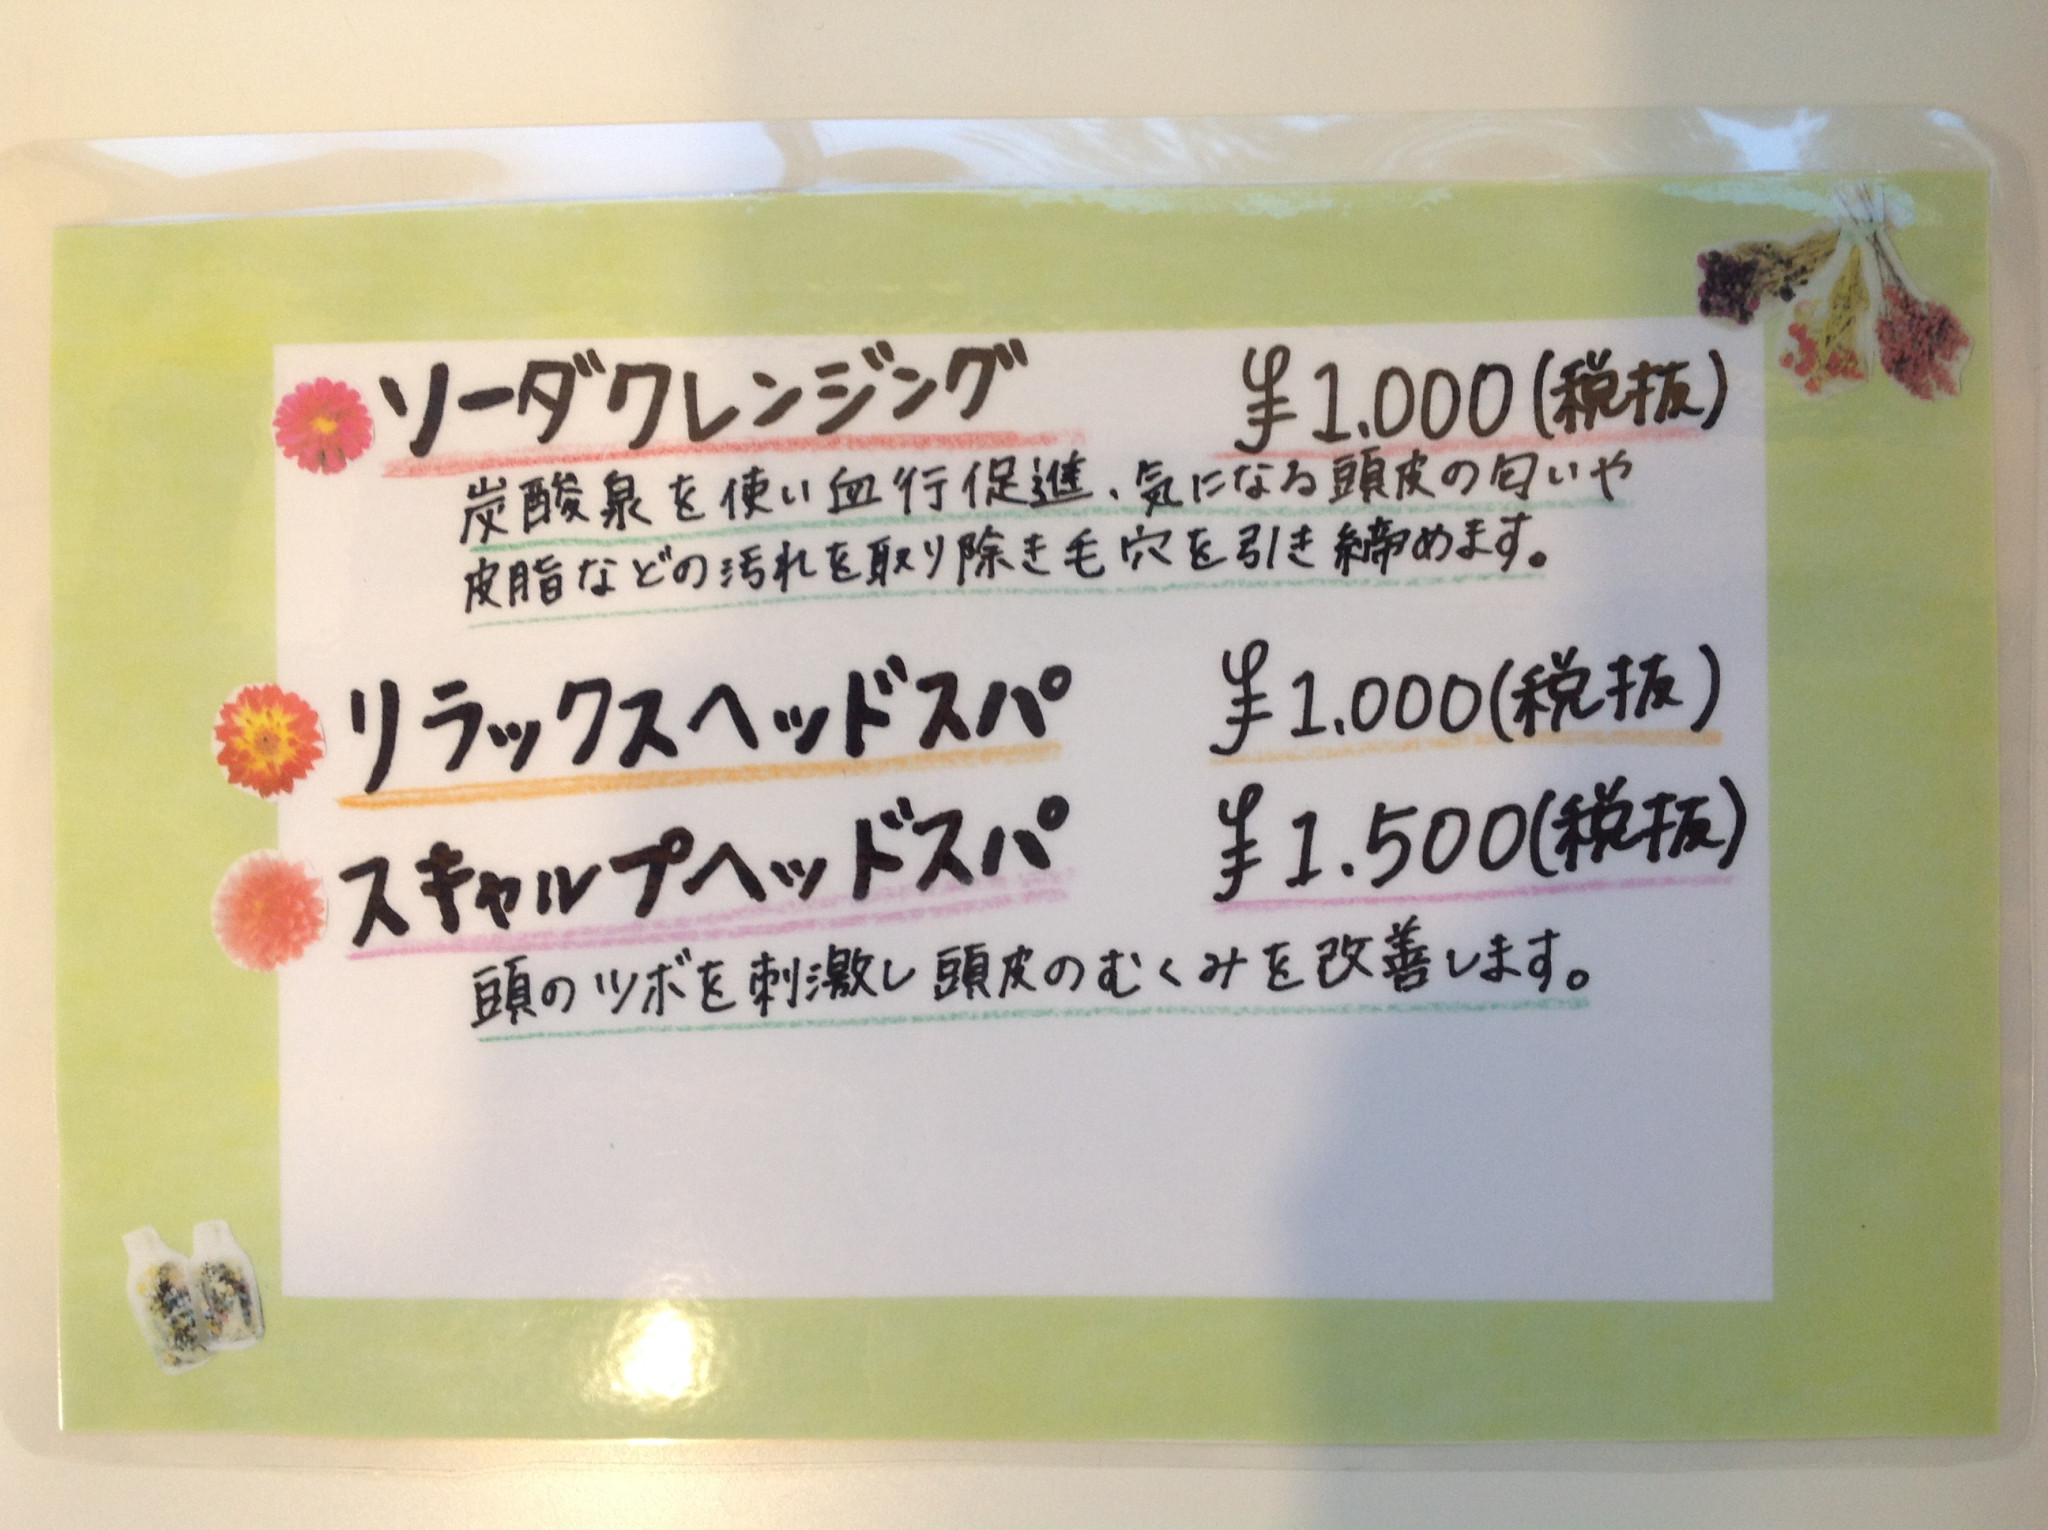 ソーダクレンジング ¥1.000(税抜)
炭酸泉を使い血行促進、気になる頭皮の匂いや
皮脂などの汚れを取り除き毛穴を引き締めます。
リラックスヘッドスパ ¥1.000(税抜)
スキャルプヘッドスパ ¥1.500(税抜)
頭のツボを刺激し頭皮のむくみを改善します。